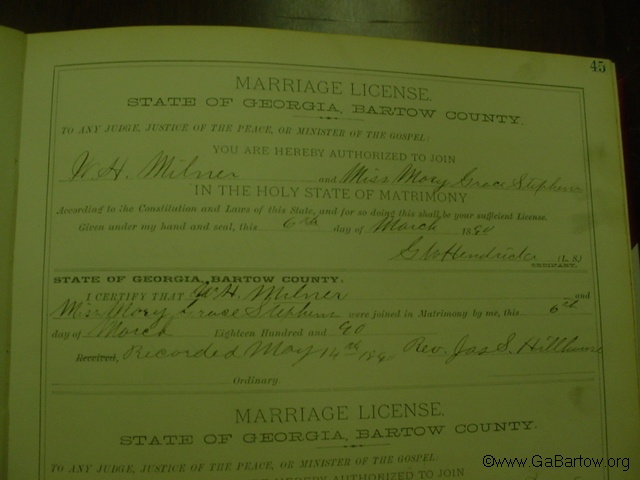 45
MARRIAGE LICENSE.
STATE OF GEORGIA, BARTOW COUNTY.
TO ANY JUDGE, JUSTICE OF THE PEACE, OR MINISTER OF THE GOSPEL:
YOU ARE HEREBY AUTHORIZED TO JOIN
W. H. Milner and Miss Mary Grace Stephens
IN THE HOLY STATE OF MATRIMONY
According to the Constitution and Laws of this State, and for so doing this shall be your sufficient License.
Given under my hand and seal, this 6th day of March 1890
G W Hendricks (L. S.)
ORDINARY.
STATE OF GEORGIA, BARTOW COUNTY.
I CERTIFY THAT W. H. Milner and
Miss Mary Grace Stephens were joined in Matrimony by me, this 6th
day of March Eighteen Hundred and 90
Received, Recorded May 14th 1890 Rev. Jas S. Hillhouse
Ordinary.
MARRIAGE LICENSE.
STATE OF GEORGIA, BARTOW COUNTY.
TO ANY JUDGE, JUSTICE OF THE PEACE, OR MINISTER OF THE GOSPEL:
YOU ARE HEREBY AUTHORIZED TO JOIN
©www.GaBartow.org